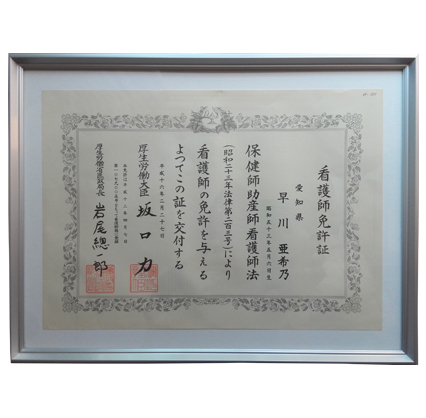 看護師免許証
愛知県
早川 亜希乃
昭和五十三年五月六日生
保健師助産師看護師法
(昭和二十三年法律第二百三号)により
看護師の免許を与える
よつてこの証を交付する
平成十六年二月二十七日
厚生労働大臣 坂口 力
厚生労働省医政局長 岩尾總一郎